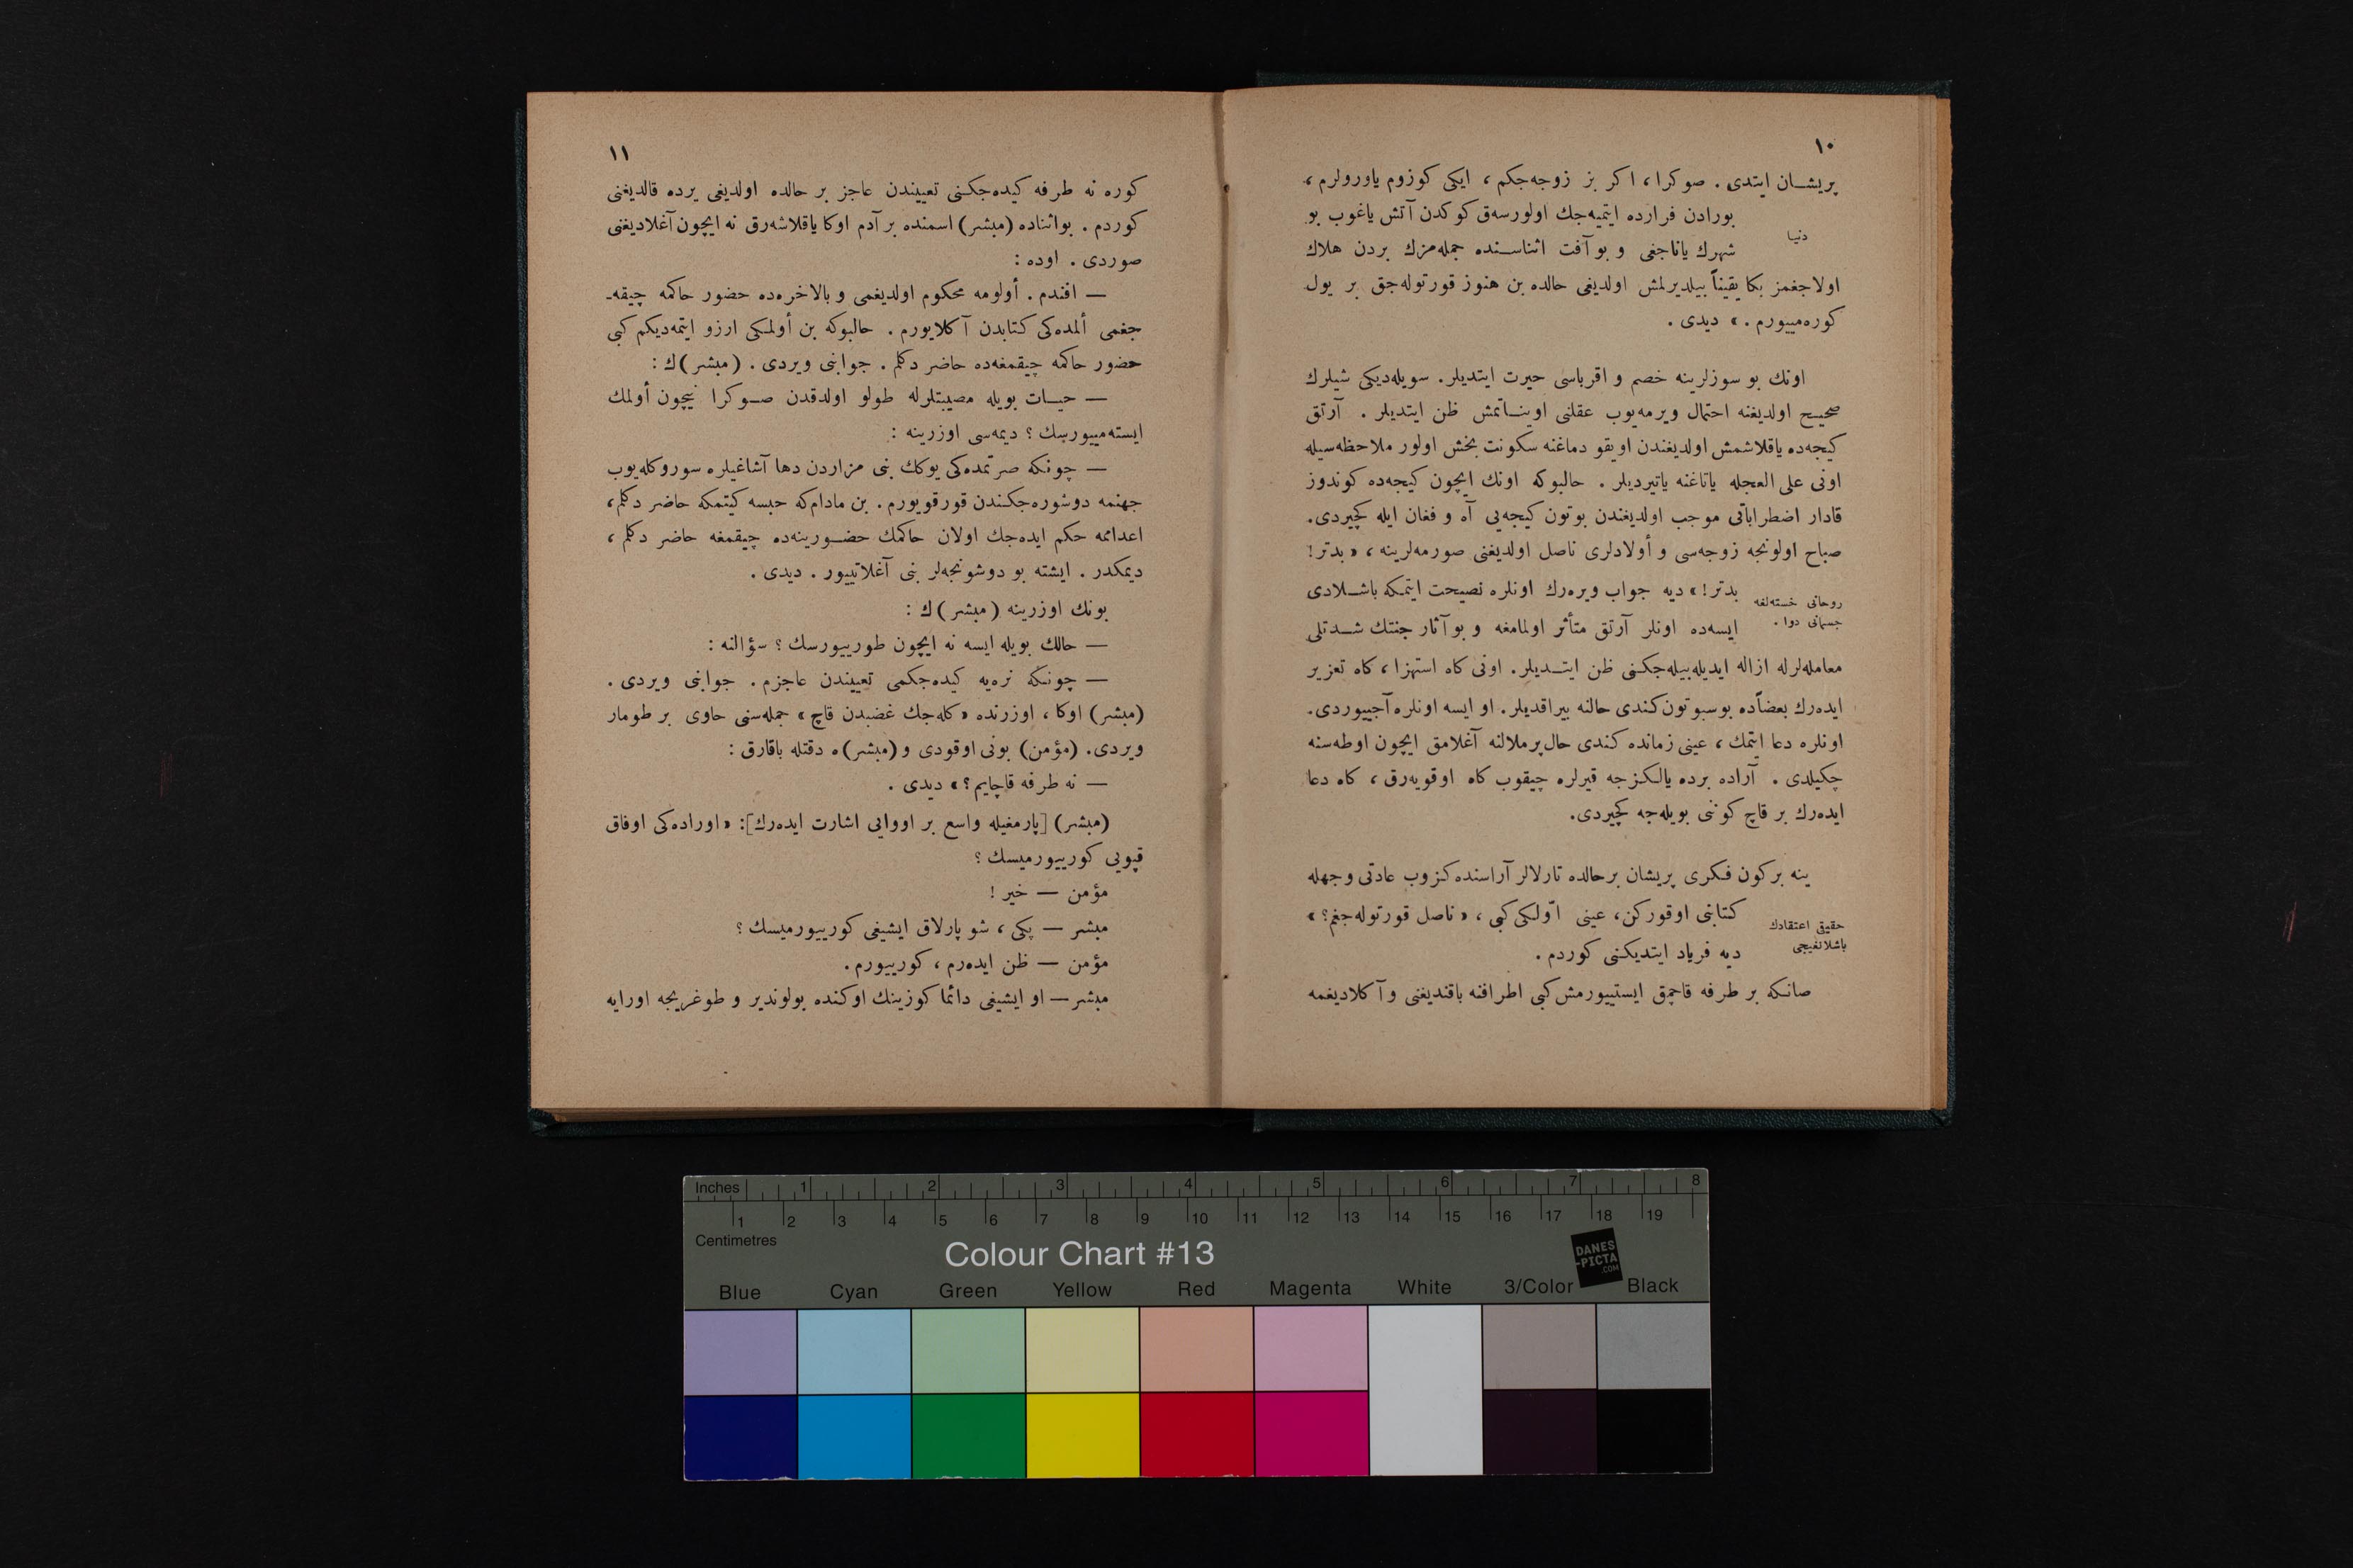 ١٠
پریشــان ایتدی. صوكرا، اكر بز زوجه‌جكم، ایكی كوزوم یاورولرم،
بورادن فرارده ایتمیه‌جك اولورسه‌ق كوكدن آتش یاغوب بو
دنیا
شهرك یاناجغی و بو آفت اثناســنده جمله‌مزك بردن هلاك
اولاجغمز بكا یقیناً بیلدیرلمش اولدیغی حالده بن هنوز قورتوله‌جق بر یول
كوره‌مییورم.» دیدی.
اونك بو سوزلرینه خصم و اقرباسی حیرت ایتدیلر. سویله‌دیكی شیلرك
صحیح اولدیغنه احتمال ویرمه‌یوب عقلنی اوینــاتمش ظن ایتدیلر. آرتق
كیجه‌ده یاقلاشمش اولدیغندن اویقو دماغنه سكونت بخش اولور ملاحظه‌سیله
اونی علی العجله یاتاغنه یاتیردیلر. حالبوكه اونك ایچون كیجه‌ده كوندوز
قادار اضطراباتی موجب اولدیغندن بوتون كیجه‌یی آه و فغان ایله كچیردی.
صباح اولونجه زوجه‌سی و أولادلری ناصل اولدیغنی صورمه‌لرینه، «بدتر!
بدتر!» دیه جواب ویره‌رك اونلره نصیحت ایتمكه باشــلادی
روحانی خسته‌لغه
جسمانی دوا.
ایسه‌ده اونلر آرتق متأثر اولمامغه و بو آثار جنتك شــدتلی
معامله‌لرله ازاله ایدیله‌بیله‌جكــنی ظن ایتــدیلر. اونی كاه استهزا، كاه تعزیر
ایده‌رك بعضاًده بوسبوتون كندی حالنه بیراقدیلر. او ایسه اونلره آجییوردی.
اونلره دعا ایتمك، عینی زمانده كندی حال پرملالنه آغلامق ایچون اوطه‌سنه
چكیلدی. آراده برده یالكــزجه قیرلره چیقوب كاه اوقویه‌رق، كاه دعا
ایده‌رك بر قاچ كوننی بویله‌جه كچیردی.
ینه بر كون فكری پریشان برحالده تارلالر آراسنده كزوب عادتی وجهله
كتابنی اوقوركن، عینی اوّلــكی كبی، «ناصل قورتوله‌جغم؟»
حقیقی اعتقادك
باشلانغیجی
دیه فریاد ایتدیكــنی كوردم.
صانــكه بر طرفه قاچمق ایستییورمش كبی اطرافنه باقندیغنی و آكلادیغمه
١١
كوره نه طرفه كیده‌جكــنی تعییندن عاجز بر حالده اولدیغی یرده قالدیغنی
كوردم. بواثناده (مبشر) اسمنده بر آدم اوكا یاقلاشه‌رق نه ایچون آغلادیغنی
صوردی. اوده:
— افندم. أولومه محكوم اولدیغمی و بالاخره‌ده حضور حاكمه چیقه‌ـ
جغمی ألمده‌كی كتابدن آكلایورم. حالبوكه بن أولمكی ارزو ایتمه‌دیكم كبی
حضور حاكمه چیقمغه‌ده حاضر دكلم. جوابنی ویردی. (مبشر)ك:
— حیــات بویله مصیبتلرله طولو اولدقدن صــوكرا نیچون أولمك
ایسته‌مییورسك؟ دیمه‌سی اوزرینه:
— چونكه صرتمده‌كی یوكك بنی مزاردن دها آشاغیلره سوروكله‌یوب
جهنمه دوشوره‌جكــندن قورقویورم. بن مادام‌كه حبسه كیتمكه حاضر دكلم،
اعدامه حكم ایده‌جك اولان حاكمك حضــورینه‌ده چیقمغه حاضر دكلم،
دیمكدر. ایشته بو دوشونجه‌لر بنی آغلاتییور. دیدی.
بونك اوزرینه (مبشر)ك:
— حالك بویله ایسه نه ایچون طورییورسك؟ سؤالنه:
— چونكه نره‌یه كیده‌جكمی تعییندن عاجزم. جوابنی ویردی.
(مبشر) اوكا، اوزرنده «كله‌جك غضبدن قاچ» جمله‌سنی حاوی بر طومار
ویردی. (مؤمن) بونی اوقودی و (مبشر)ه دقتله باقارق:
— نه طرفه قاچایم؟» دیدی.
(مبشر) [پارمغیله واسع بر اووایی اشارت ایده‌رك]: «اوراده‌كی اوفاق
قپویی كورییورمیسك؟
مؤمن — خیر!
مبشر — پكی، شو پارلاق ایشیغی كورییورمیسك؟
مؤمن — ظن ایده‌رم، كورییورم.
مبشر — او ایشیغی دائما كوزینك اوكنده بولوندیر و طوغریجه اورایه
Inches 1 2 3 4 5 6 7 8
1 2 3 4 5 6 7 8 9 10 11 12 13 14 15 16 17 18 19
Centimetres
Colour Chart #13
DANES
-PICTA
.COM
Blue Cyan Green Yellow Red Magenta White 3/Color Black